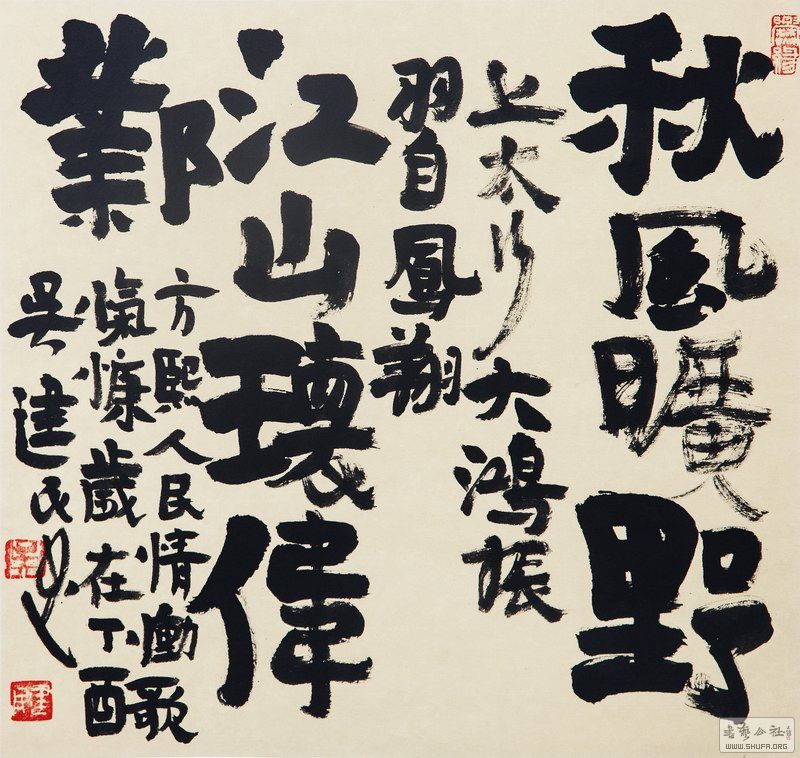 秋風曠野
上太行大鴻振
羽自鳳翔
江山瓌偉
鄴
方熙人民情歌
愾慷歲在丁酉
吳建民
書藝公社
WWW.SHUFA.ORG